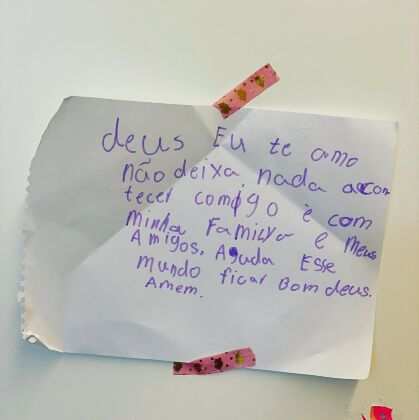 deus Eu te amo
não deixa nada acon
tecer comigo è com
minha Familya e Meus
Amigos, Aguda Esse
mundo ficar Bom deus.
Amem.